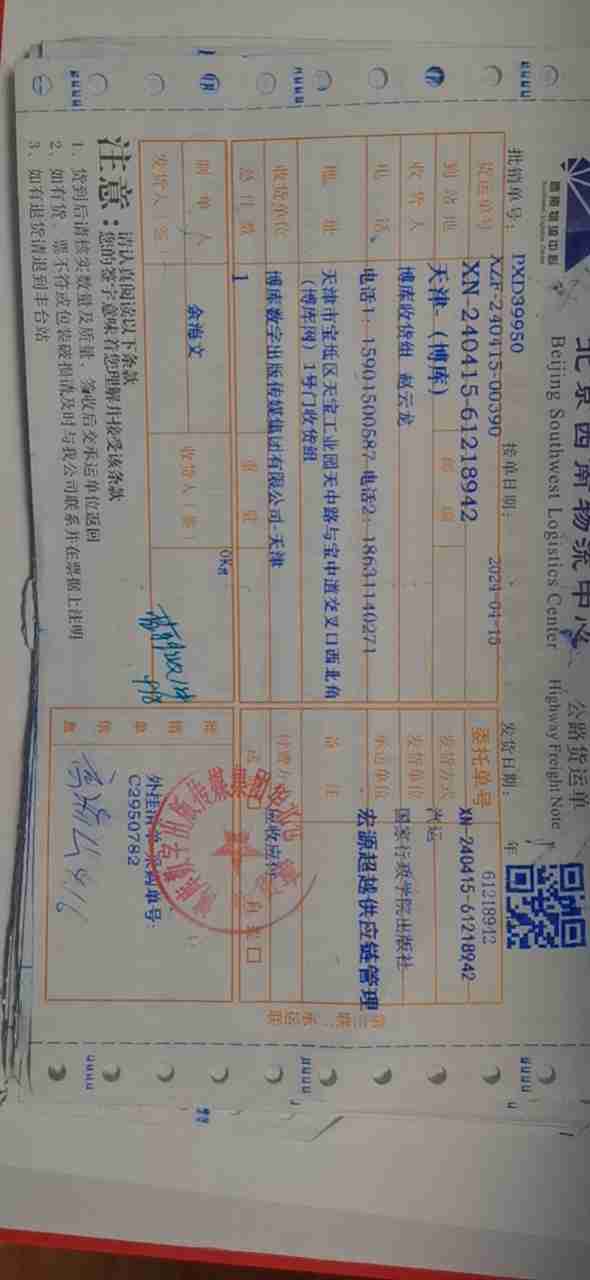 西南物流中心
北京西南物流中心
公路货运单
Beijing Southwest Logistics Center
Highway Freight Note
批销单号：
PXD39950
接单日期：
2024-04-15
发货日期：
年
61218942
XZF-240415-00390
货运单号
XN-240415-61218942
委托单号
XN-240415-61218942
到站地
天津-（博库）
邮编
发货方式
汽运
收货人
博库收货组 赵云龙
发货单位
国家行政学院出版社
电话
电话1：15901500587-电话2：18631140271
承运单位
宏源超越供应链管理
地址
天津市宝坻区天宝工业园天中路与宝中道交叉口西北角
（博库网）1号门收货组
备注
收货单位
博库数字出版传媒集团有限公司-天津
付费方
应收应付
总件数
1
重量
0Kg
自提口
制单人
余海文
发货人（签）
收货人（签）
批销单
外挂清单 采购单号：
C2950782
第三联：承运联
注意：
请认真阅读以下条款
您的签字意味着您理解并接受该条款
1、货到后请核实数量及质量，签收后交承运单位返回
2、如有货、票不符或包装破损请及时与我公司联系并在票据上注明
3、如有退货请退到丰台站